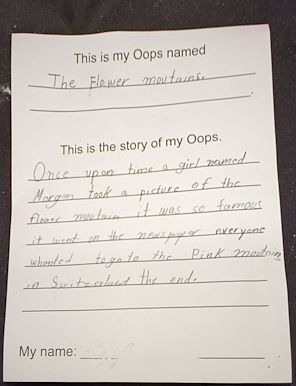 This is my Oops named
The Flower moutains.
This is the story of my Oops.
Once upon time a girl named
Morgan took a picture of the
flower moutain it was so famous
it went on the newspaper everyone
whanted to go to the Pink moutain
in Switzerland the end.
My name: